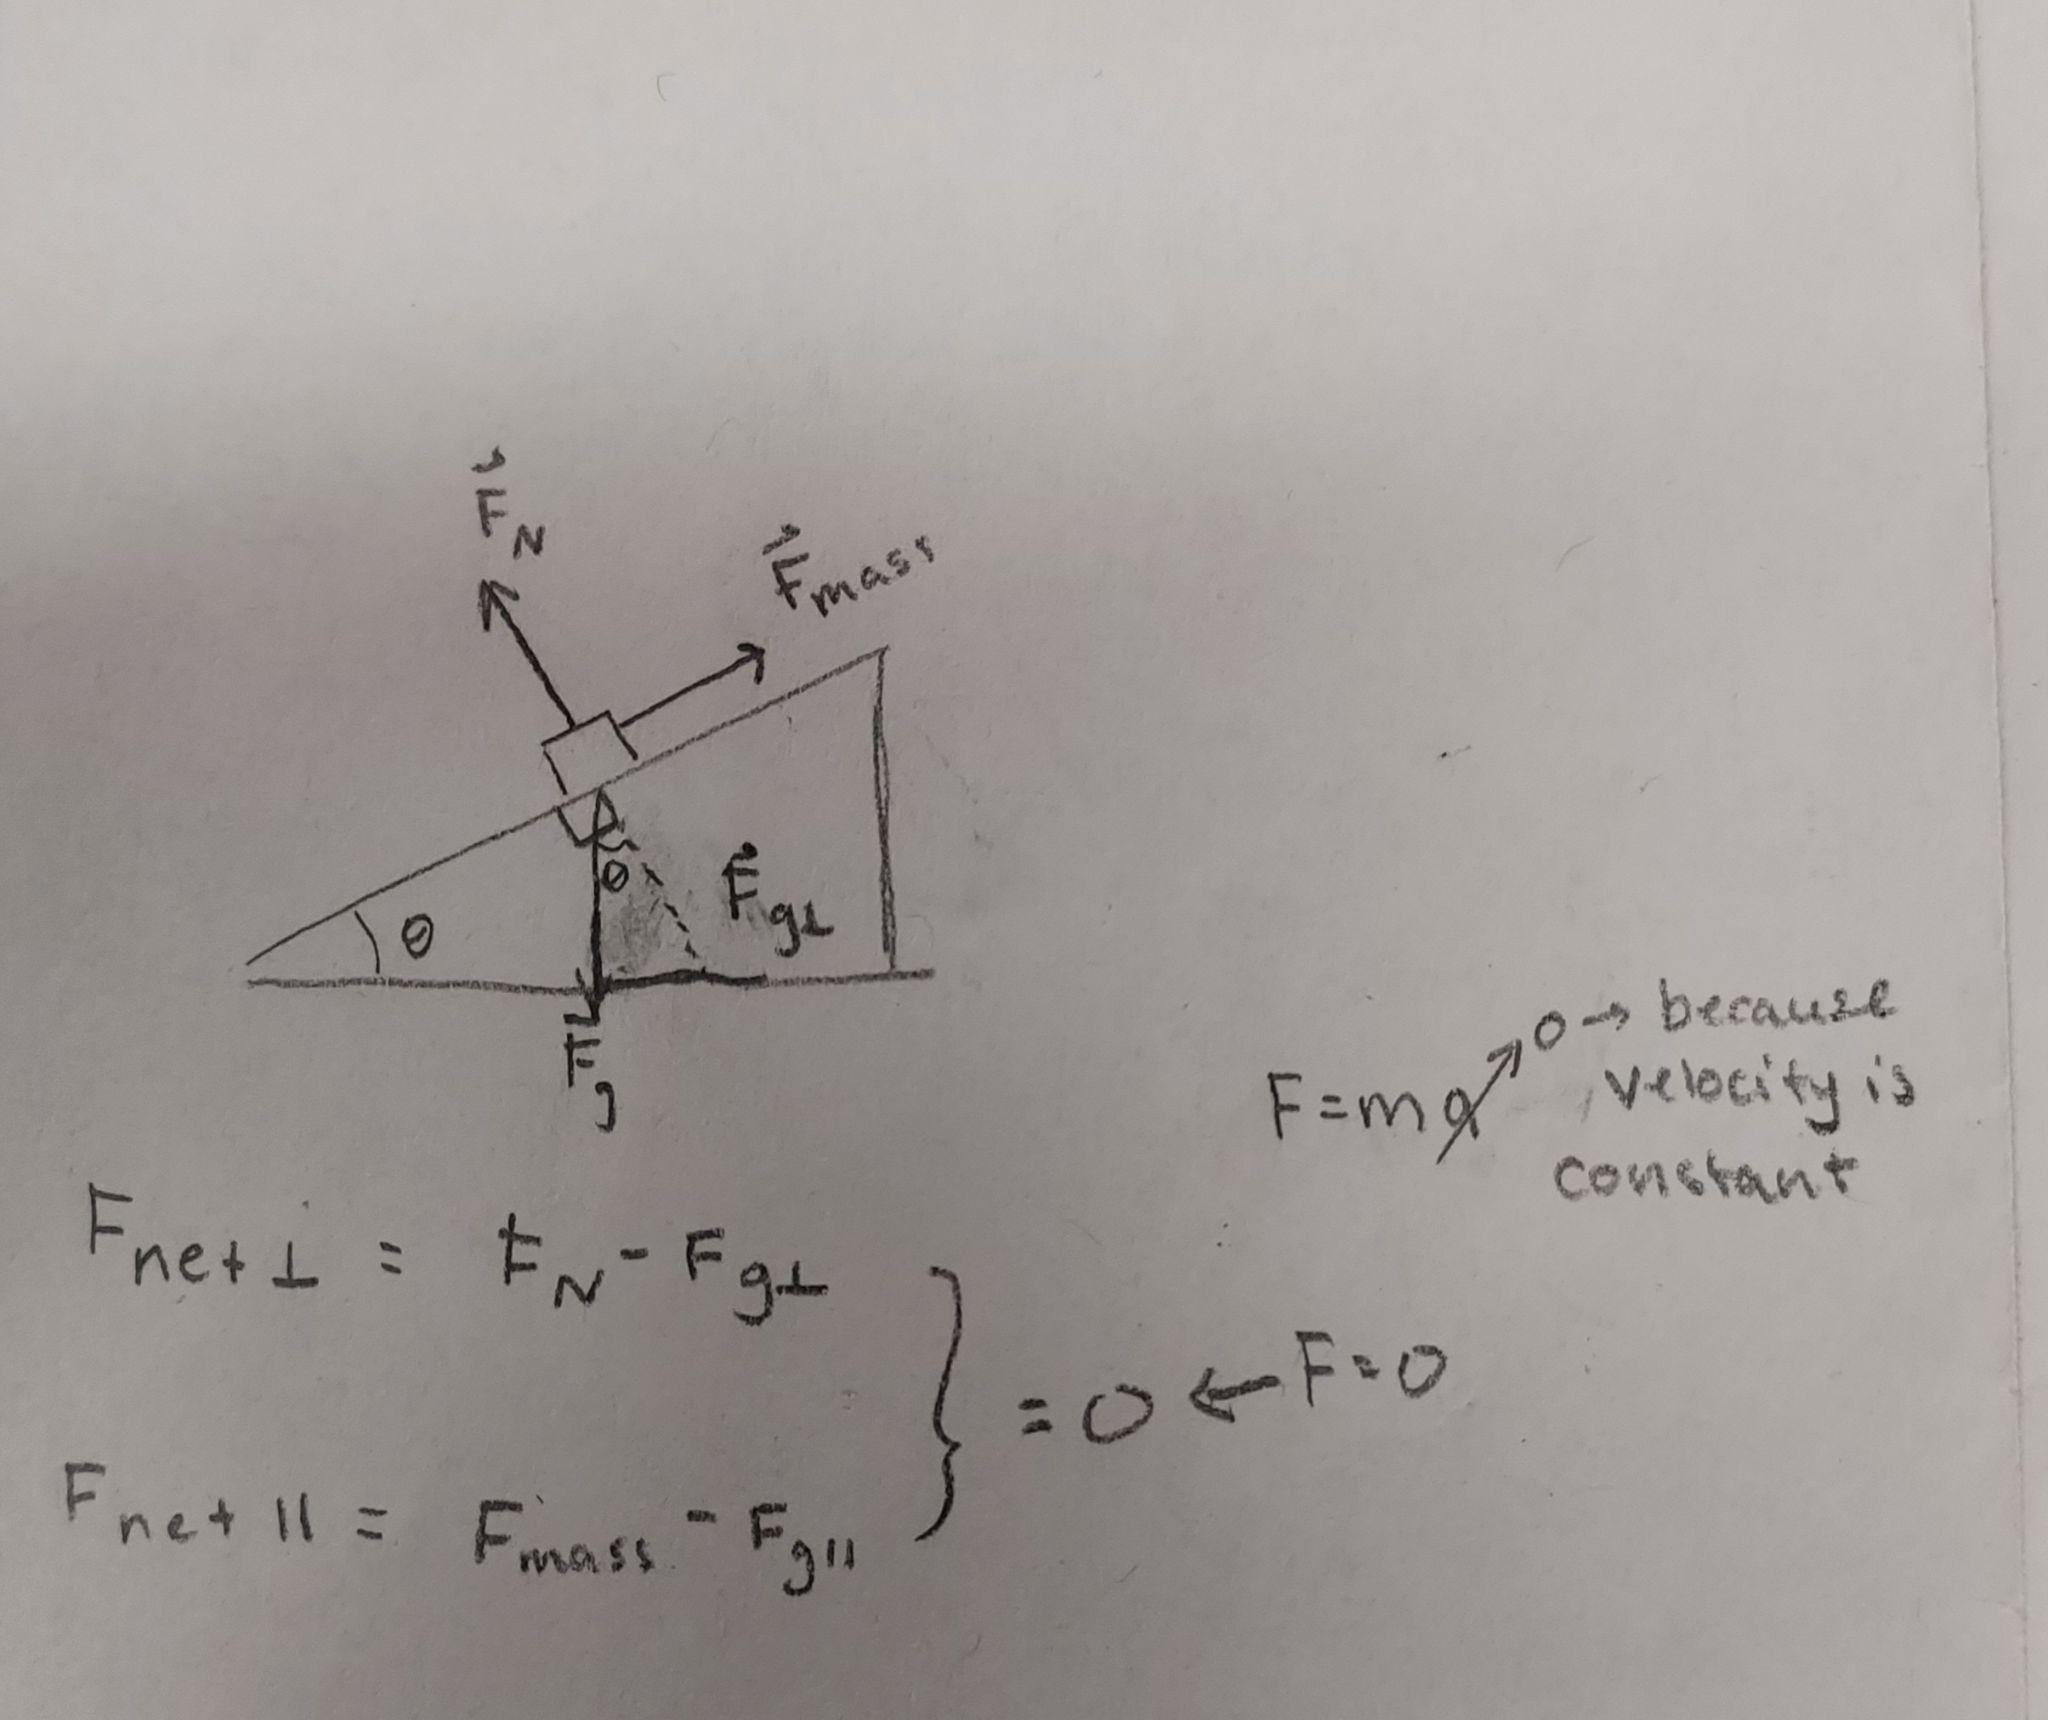 F⃗_N
F⃗_mass
θ
θ
F⃗_g⊥
F⃗_g
F=ma↗0→ because
velocity is
constant
F_net⊥ = F_N - F_g⊥
= 0 ← F=0
F_net|| = F_mass - F_g||